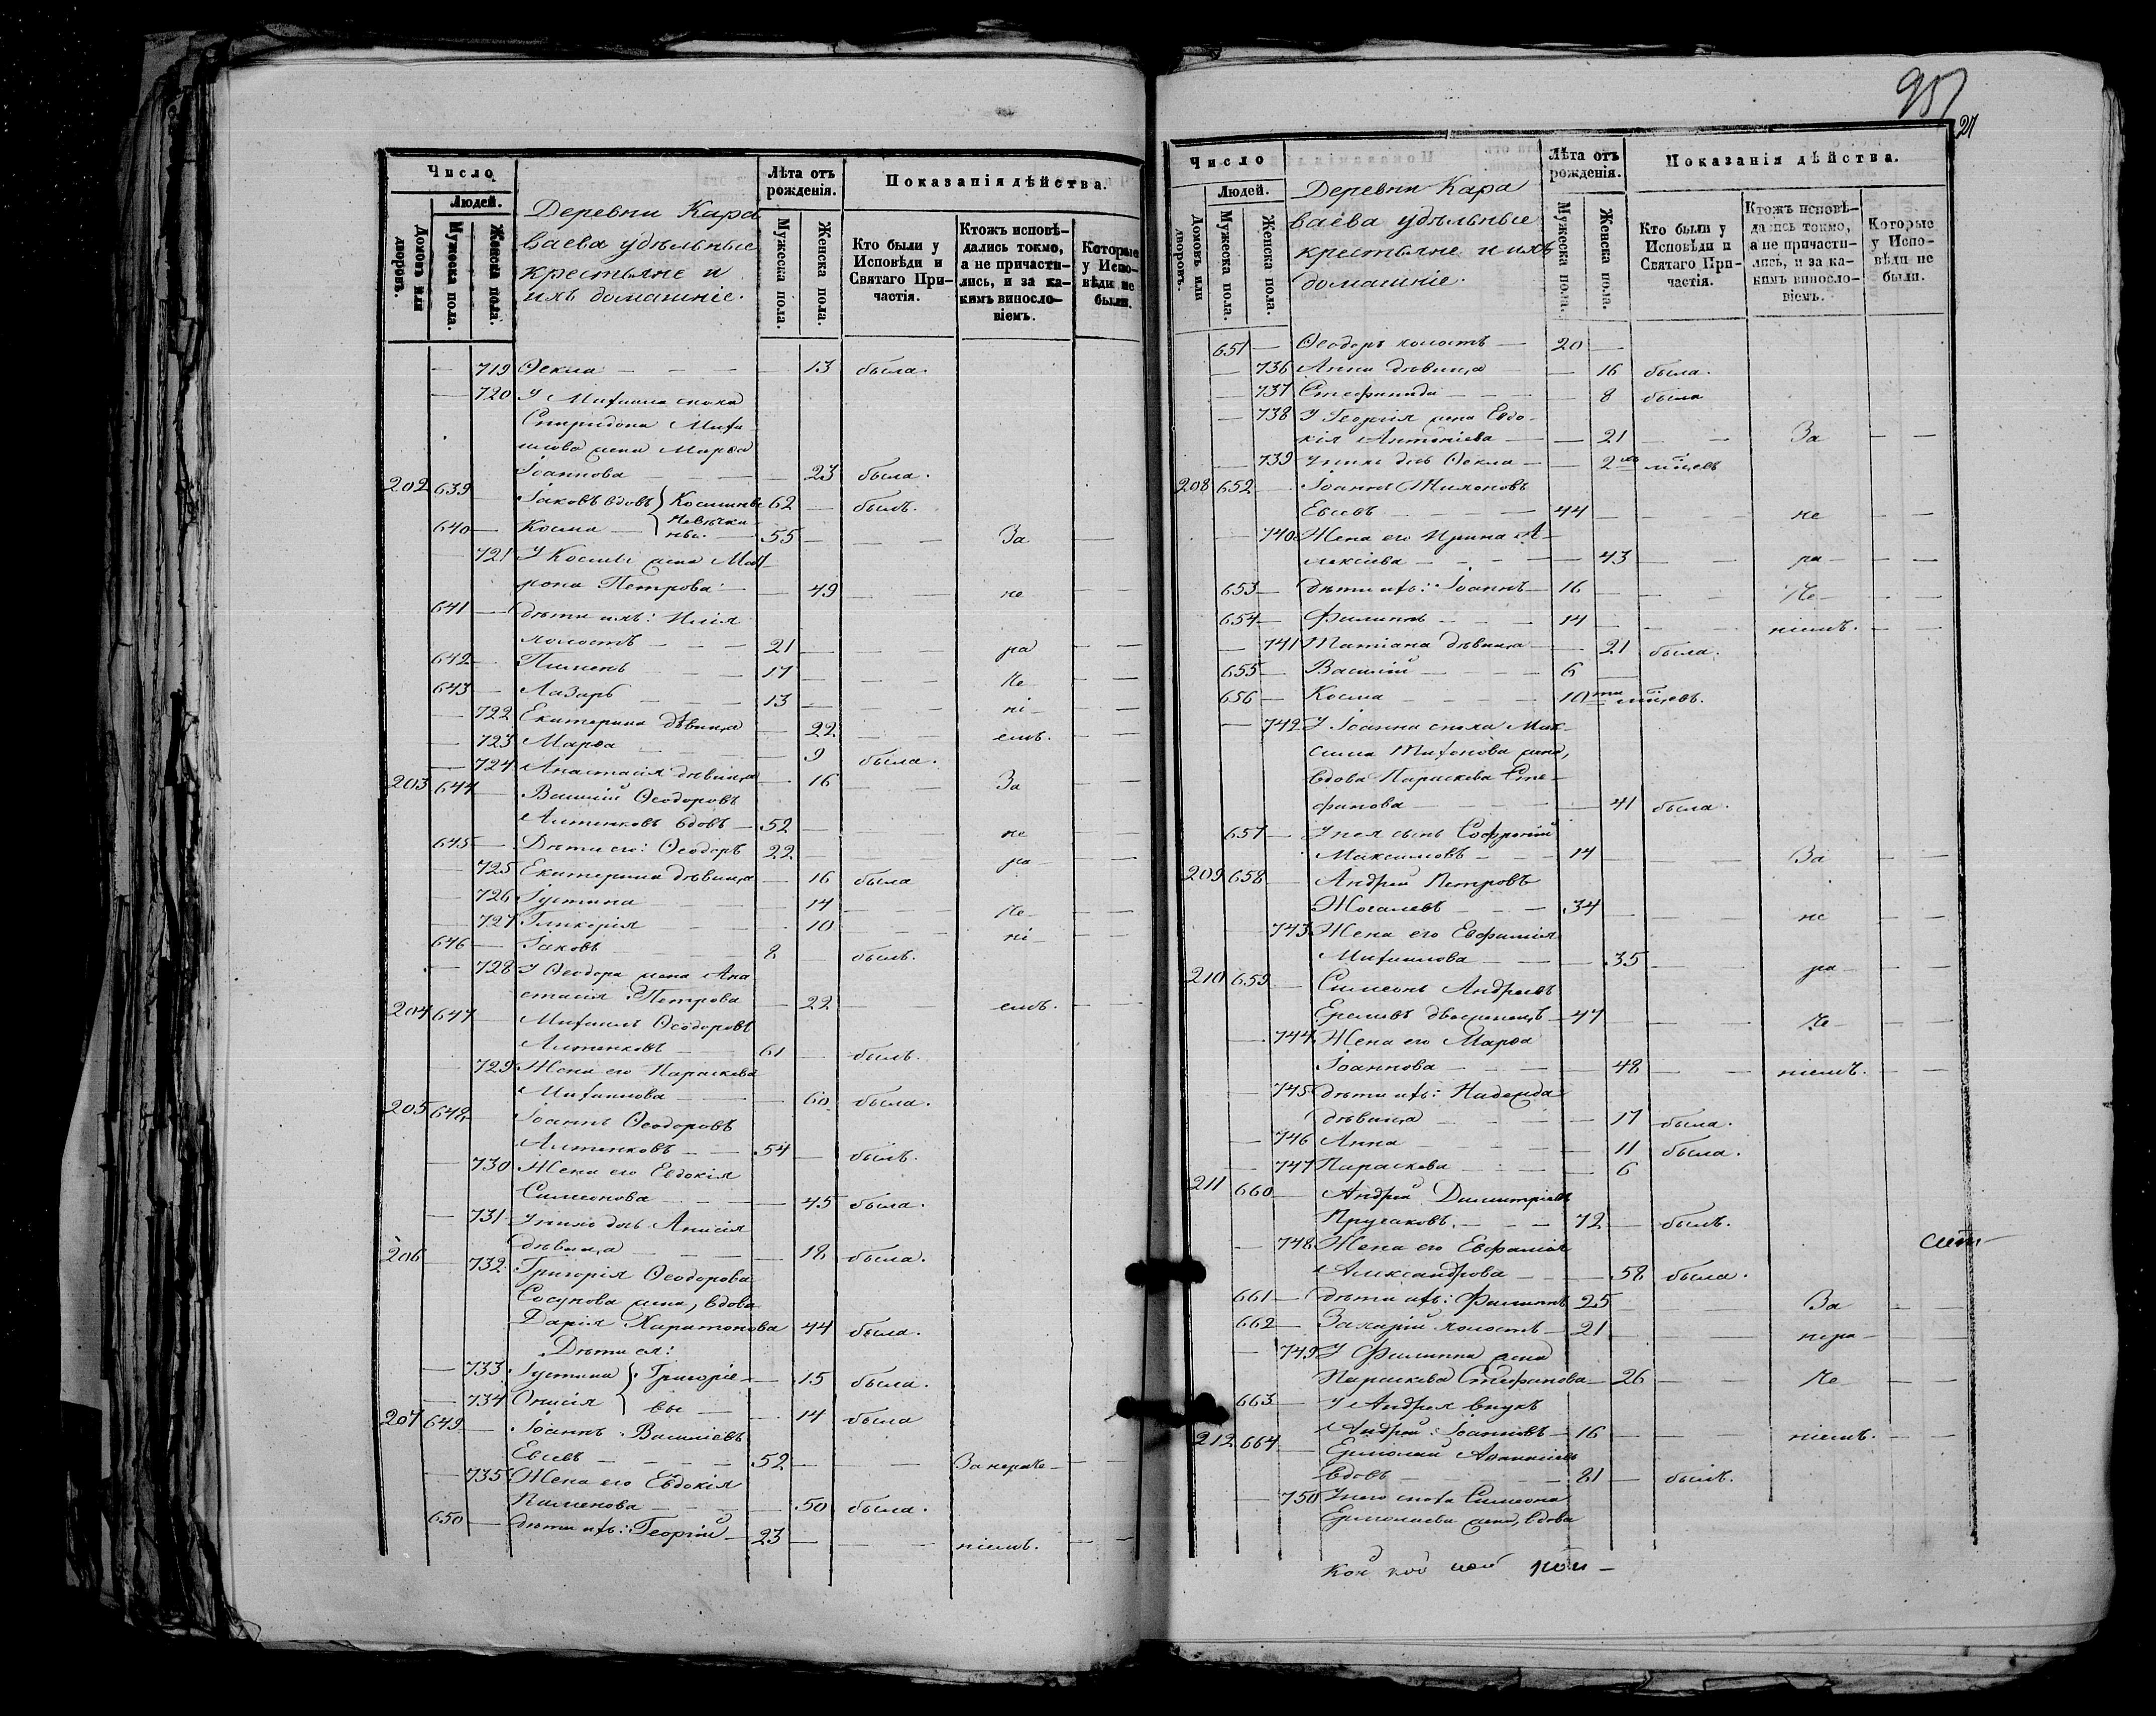 Число
Людей.
Домовъ или дворовъ.
Мужеска пола.
Женска пола.
Деревни Кара
ваева удѣльные
крестьяне и
ихъ домашніе.
Лѣта отъ рожденія.
Мужеска пола.
Женска пола.
Показанія дѣйства.
Кто были у Исповѣди и Святаго Причастія.
Ктожъ исповѣдались токмо, а не причастились, и за какимъ винословіемъ.
Которые у Исповѣди не были.
— 719 Ѳекла — — — 13 была.
— 720 У Михаила сноха
Спиридона Миха
илова жена Марѳа
Іоаннова — — 23 была.
202 639 Іаковъ вдовъ } Космины 62 — былъ.
640 — Косма — 55 — — — За —
— 721 У Космы жена Мат
рона Петрова — — 49 — — не — —
641 — дѣти ихъ: Илія
холостъ — — — 21 — — — ра — —
642 — Пименъ — — 17 — — — че — —
643 — Лазарь — — 13 — — — ні — —
— 722 Екатерина дѣвица — 22 — — емъ. — —
— 723 Марѳа — — — 9 была.
— 724 Анастасія дѣвица — 16 — — За —
203 644 — Василій Ѳеодоровъ
Алтенковъ вдовъ — 52 — — — не — —
645 — Дѣти его: Ѳеодоръ 22 — — — ра — —
— 725 Екатерина дѣвица — 16 была
— 726 Іустина — — — 14 — — че — —
— 727 Гликерія — — — 10 — — ні — —
646 — Іаковъ — — 8 — былъ.
— 728 У Ѳеодора жена Ана
стасія Петрова — 22 — — емъ. — —
204 647 — Михаилъ Ѳеодоровъ
Алтенковъ — — 61 — былъ.
— 729 Жена его Параскева
Михаилова — — — 60 была.
205 648 — Іоаннъ Ѳеодоровъ
Алтенковъ — — 54 — былъ.
— 730 Жена его Евдокія
Симеонова — — — 45 была.
— 731 У нихъ дочь Анисія
дѣвица — — — 18 была.
206 — 732 Григорія Ѳеодорова
Сосунова жена, вдова
Дарія Харитонова 44 была.
Дѣти ея:
— 733 Іустина } Григоріе — 15 была.
— 734 Онисія } вы — — 14 была
207 649 — Іоаннъ Василіевъ
Евсевъ — — — — 52 — — — За нераче — —
— 735 Жена его Евдокія
Пименова — — — 50 была.
650 — дѣти ихъ: Георгій — 23 — — — ніемъ. — —
951
21
Число
Людей.
Домовъ или дворовъ.
Мужеска пола.
Женска пола.
Деревни Кара
ваева удѣльные
крестьяне и ихъ
домашніе.
Лѣта отъ рожденія.
Мужеска пола.
Женска пола.
Показанія дѣйства.
Кто были у Исповѣди и Святаго Причастія.
Ктожъ исповѣдались токмо, а не причастились, и за какимъ винословіемъ.
Которые у Исповѣди не были.
651 — Ѳеодоръ холостъ — 20 —
— 736 Анна дѣвица — — 16 была.
— 737 Стефанида — — — 8 была
— 738 У Георгія жена Евдо-
кія Антоніева — — 21 — — За — —
— 739 У нихъ дочь Ѳекла — — 2хъ мѣсяцевъ
208 652 — Іоаннъ
Евсевъ — — — — 44 — — — не — —
— 740 Жена его Ирина А-
лексіева — — — — 43 — — ра — —
653 — дѣти ихъ: Іоаннъ — 16 — — — че — —
654 — Филиппъ — — — 14 — — — ніемъ. — —
— 741 Татіана дѣвица — — 21 была.
655 — Василій — — — — 6
656 — Косма — — — 10ти мѣсяцевъ.
— 742 У Іоанна сноха Мак-
сима жена,
вдова Параскева Сте-
фанова — — — 41 была.
657 — У нея сынъ Софроній
Максимовъ — — — 14 — — — За — —
209 658 — Андрей Петровъ
Жогалевъ — — — 34 — — — не — —
— 743 Жена его Евфимія
Михаилова — — — 35 — — ра — —
210 659 — Симеонъ Андреевъ
Еремевъ двоеженецъ — 47 — — — че — —
— 744 Жена его Марѳа
Іоаннова — — — — 48 — — ніемъ. — —
— 745 дѣти ихъ: Надежда
дѣвица — — — — 17 была.
— 746 Анна — — — — 11 была.
— 747 Параскева — — — 6
211 660 — Андрей Димитріевъ
Прусаковъ — — — 72 — былъ.
— 748 Жена его Евфимія
Александрова — — — 58 была.
661 — дѣти ихъ: Филиппъ 25 — — — За — —
662 — Захарій холостъ — 21 — — — нера — —
— 749 У Филиппа жена
Параскева Стефанова — 26 — — че — —
663 — У Андрея внукъ
Андрей Іоанновъ — 16 — — — ніемъ. — —
212 664 — Ермолай
вдовъ — — — — 81 — былъ.
— 750 У него сноха Симеона
Ермолаева жена, вдова